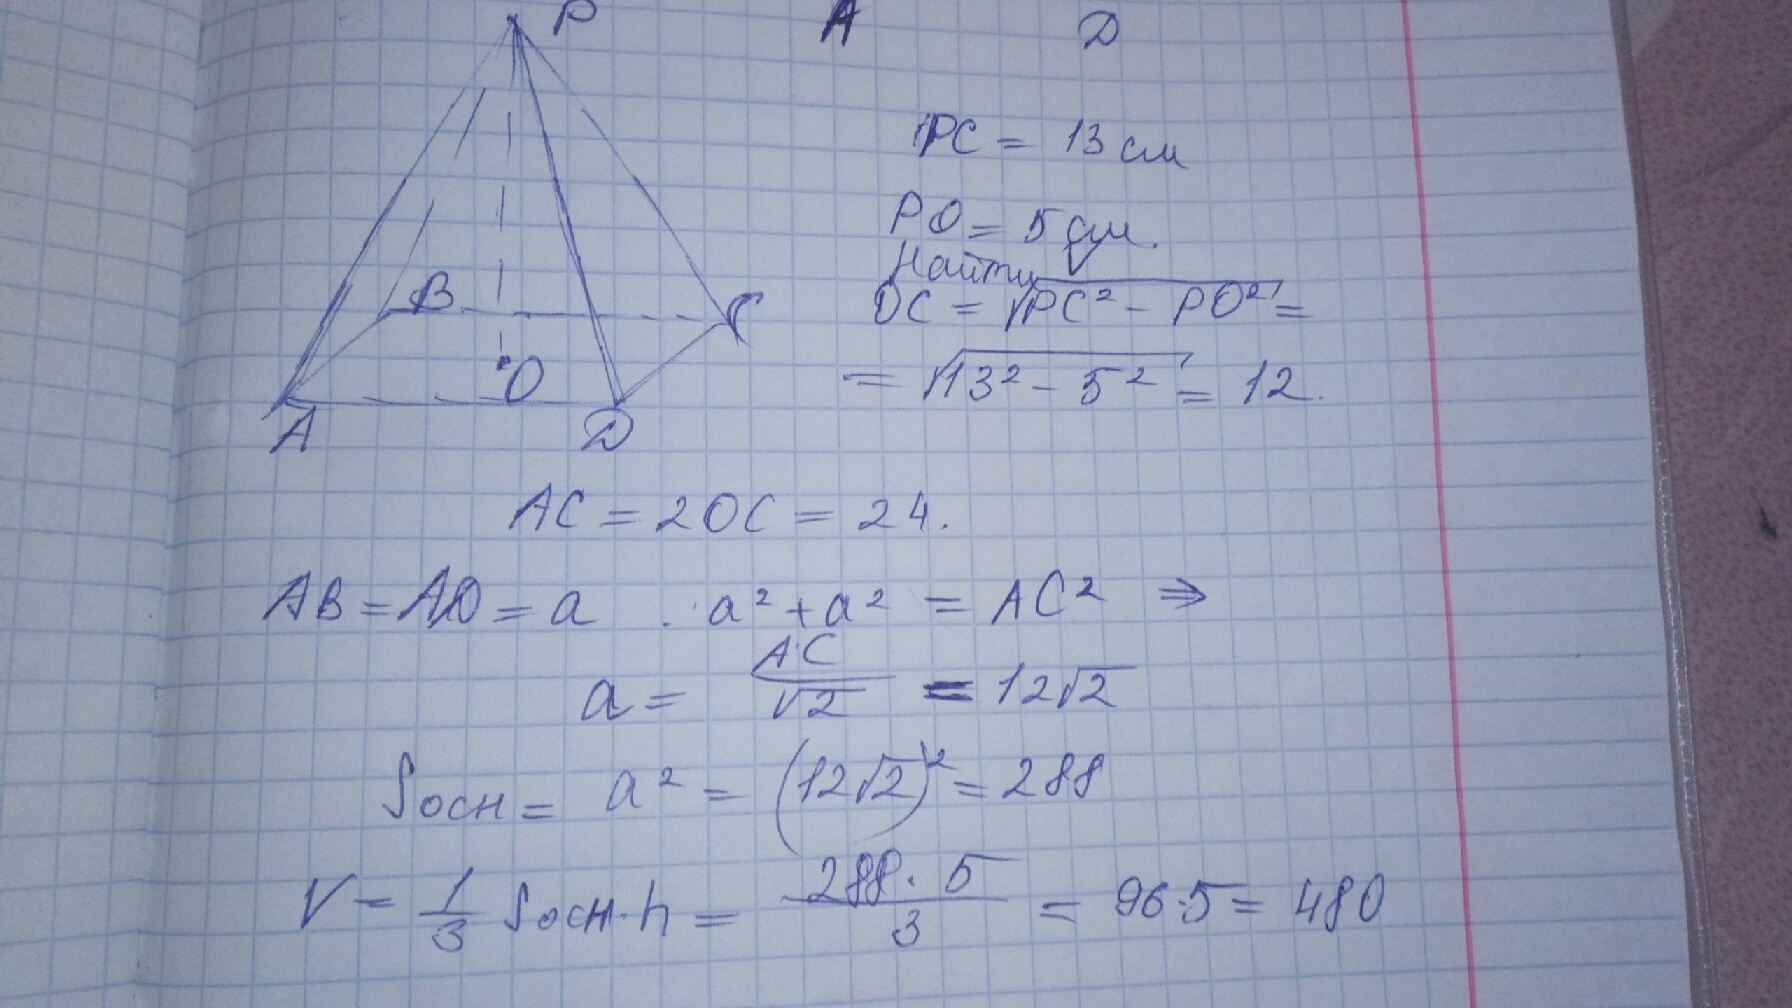 P
A D
PC = 13 см
PO = 5 см.
Найти
OC = √PC² - PO² =
= √13² - 5² = 12.
B
C
O
A
D
AC = 2OC = 24.
AB = AD = a . a² + a² = AC² ⇒
a = AC/√2 = 12√2
Sосн = a² = (12√2)² = 288
V = 1/3 Sосн·h = 288·5/3 = 96·5 = 480